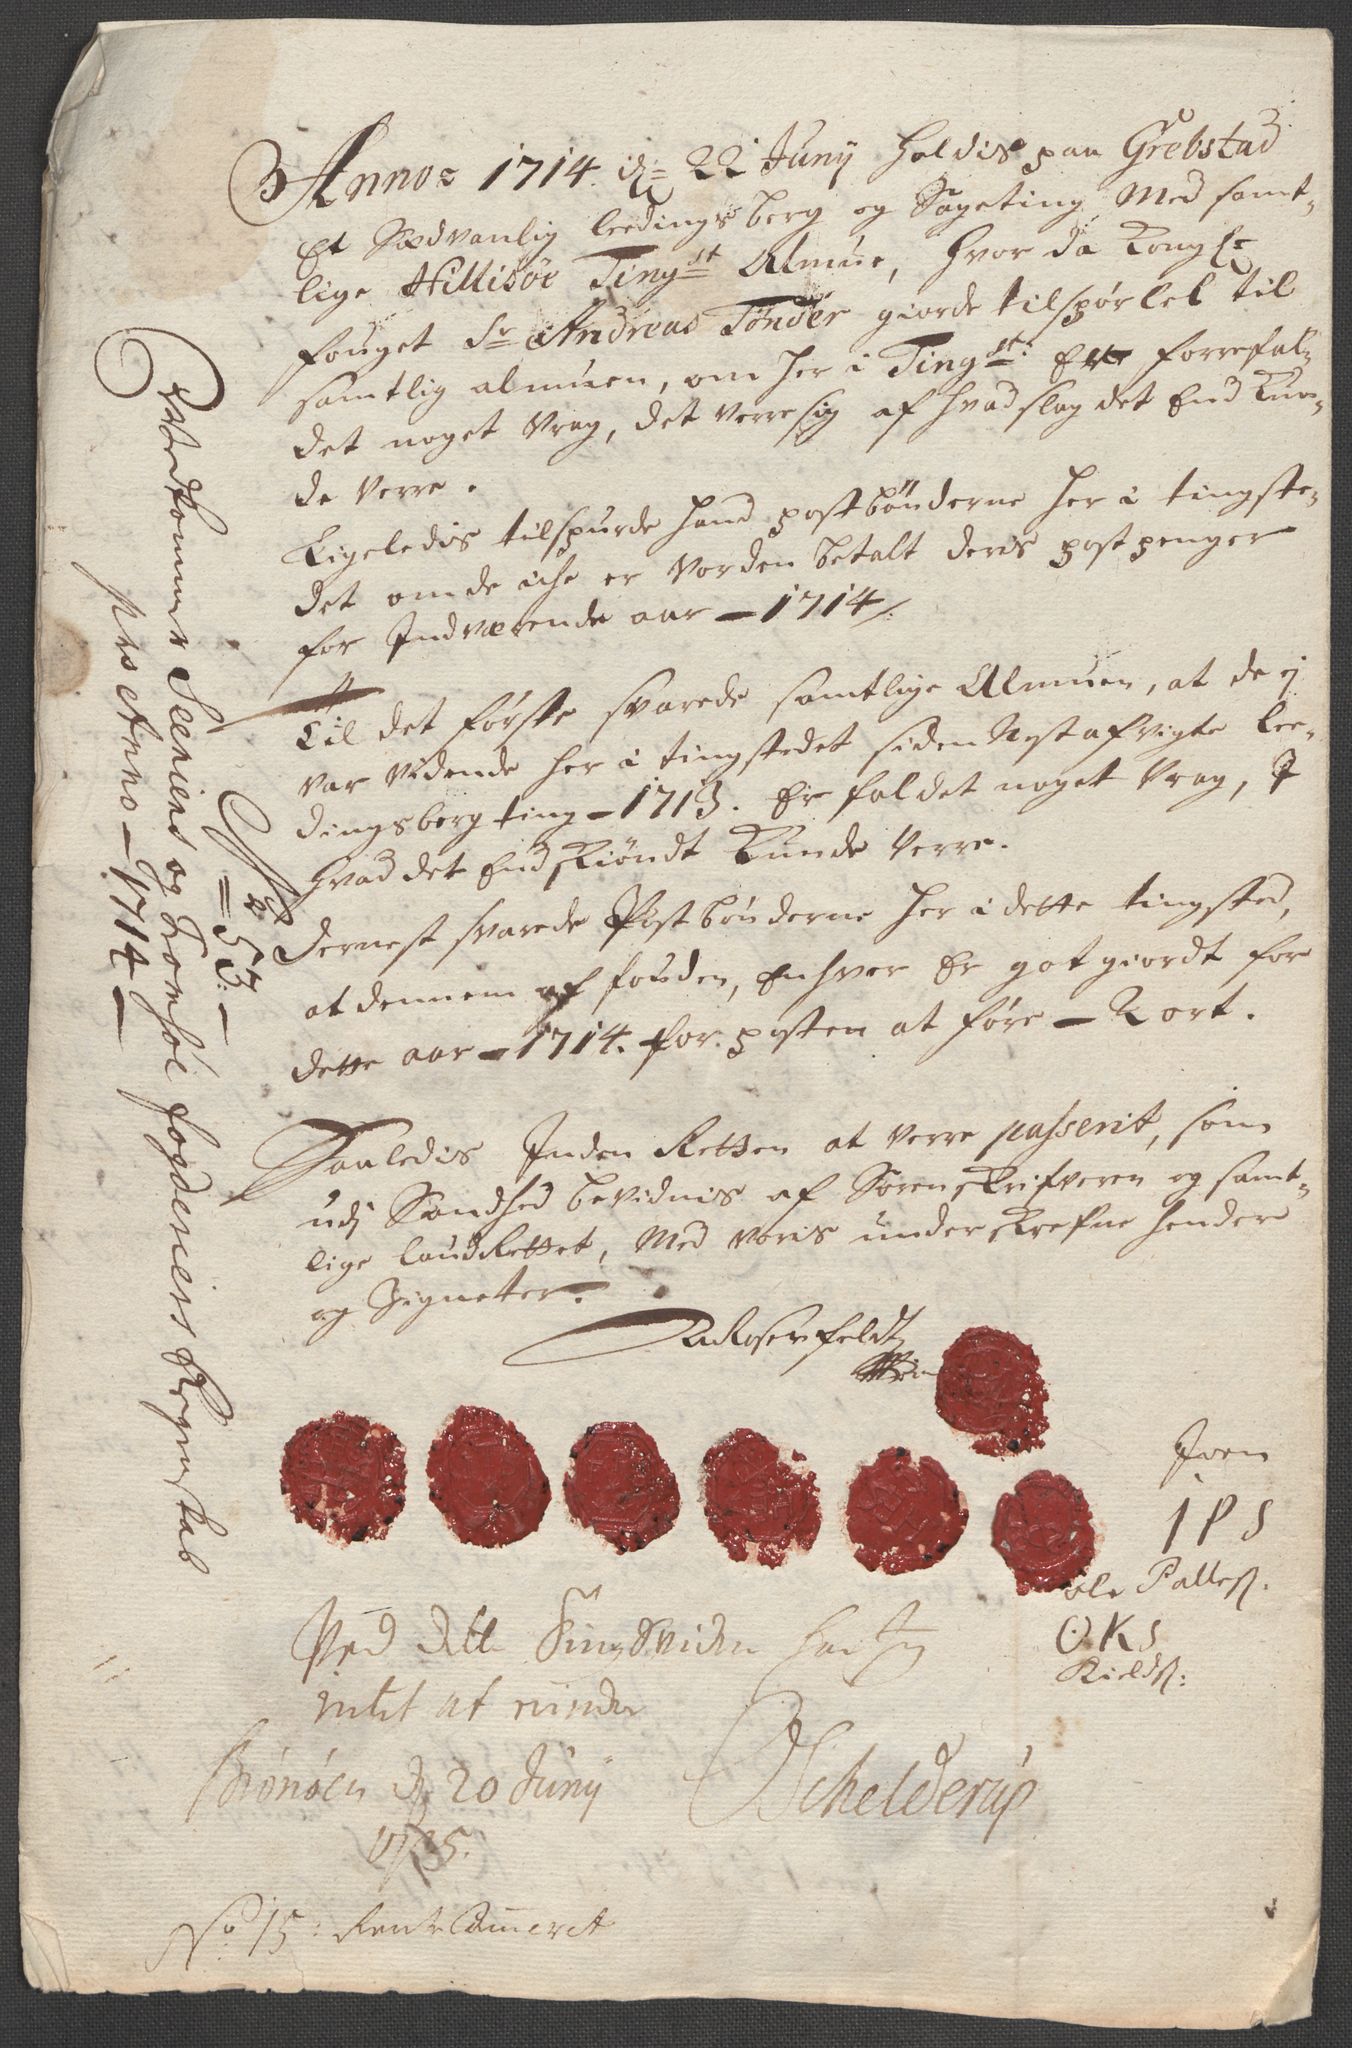 Annoe 1714. d: 22 Juny holdis paa Grebstad
Et Sædvanlig leedingsberg og Sageting Med samt-
lige Hillisöe Tingst Almue, hvor da Kongl:
fouget Sr Andreas Tönder giorde tilspörsel til
samtlig almuen, om her i Tingst: Er forrefal-
det noget Vrag, det verre sig af hvad slag det End Kun-
de verre.
Ligeledis tilspurde hand postbönderne her i tingste-
det om de iche er Vorden betalt deris postpenger
for Indværende aar - 1714/.
Til det förste svarede samtlige Almuen, at de ej
var Vidende her i tingstedet siden Nest afvigte lee-
dingsberg ting - 1713. Er faldet noget Vrag, I
hvad det End skiöndt Kunde Verre.
Dernest svarede Postbönderne her i dette tingsted,
at dennem af fouden, Enhver Er got giordt for
dette aar - 1714. for posten at före - Kort.
Saaledis Inden Retten at verre passerit, som
udj Sandhed bevidnis af Sorenskrifveren og samt-
lige laudRettet, Med voris underskrefne hender
og Signeter.
Rosenfeldt
Iven
I P S
ole Palless.
O K S
Kields:
Ved dette Tings Vidne har Jeg
intet at erindre
Brönöen d 20 Juny
1715.
Schelderup
No 15: Rente Cameret
Vedkommer Senniens og Tromsöe fogderiers Regenskab
pro Anno - 1714 -
= 53. -